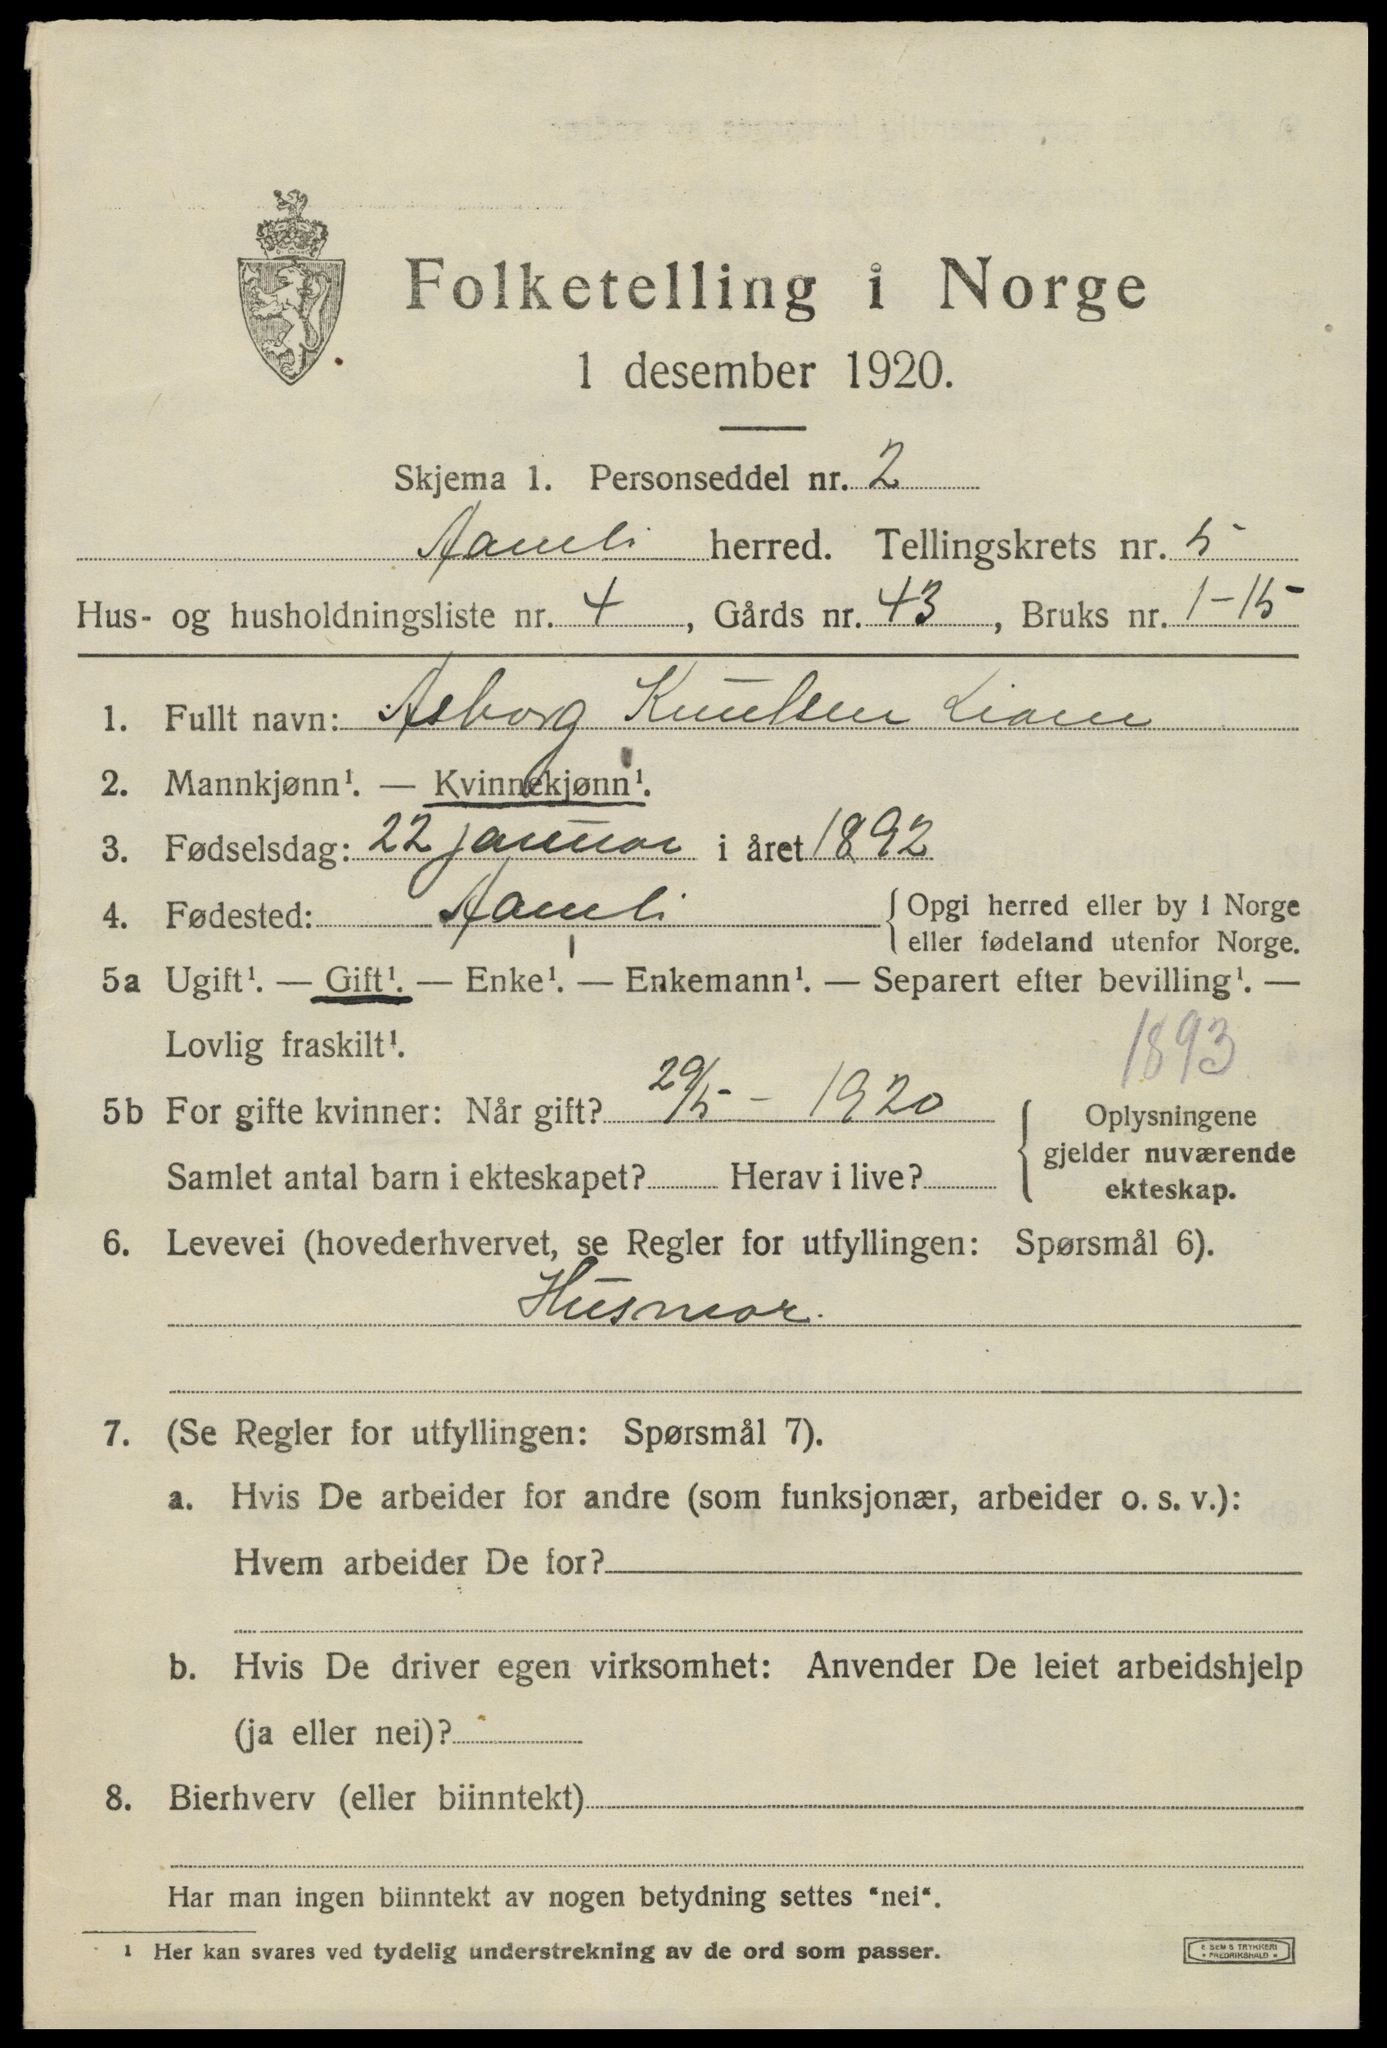 Folketelling i Norge
1 desember 1920.
Skjema 1. Personseddel nr. 2
Aamli herred. Tellingskrets nr. 5
Hus- og husholdningsliste nr. 4, Gårds nr. 43, Bruks nr. 1-15
1. Fullt navn: Asborg Knutsen Liane
2. Mannkjønn¹. — Kvinnekjønn¹.
3. Fødselsdag: 22 januar i året 1892
4. Fødested: Aamli { Opgi herred eller by i Norge
eller fødeland utenfor Norge.
5a Ugift¹. — Gift¹. — Enke¹. — Enkemann¹. — Separert efter bevilling¹. —
Lovlig fraskilt¹.
1893
5b For gifte kvinner: Når gift? 29/5 - 1920 { Oplysningene
gjelder nuværende
Samlet antal barn i ekteskapet? Herav i live? ekteskap.
6. Levevei (hovederhvervet, se Regler for utfyllingen: Spørsmål 6).
Husmor.
7. (Se Regler for utfyllingen: Spørsmål 7).
a. Hvis De arbeider for andre (som funksjonær, arbeider o. s. v.):
Hvem arbeider De for?
b. Hvis De driver egen virksomhet: Anvender De leiet arbeidshjelp
(ja eller nei)?
8. Bierhverv (eller biinntekt)
Har man ingen biinntekt av nogen betydning settes “nei“.
¹ Her kan svares ved tydelig understrekning av de ord som passer.
E SEM S TRYKKERI
* FREDRIKSHALD *